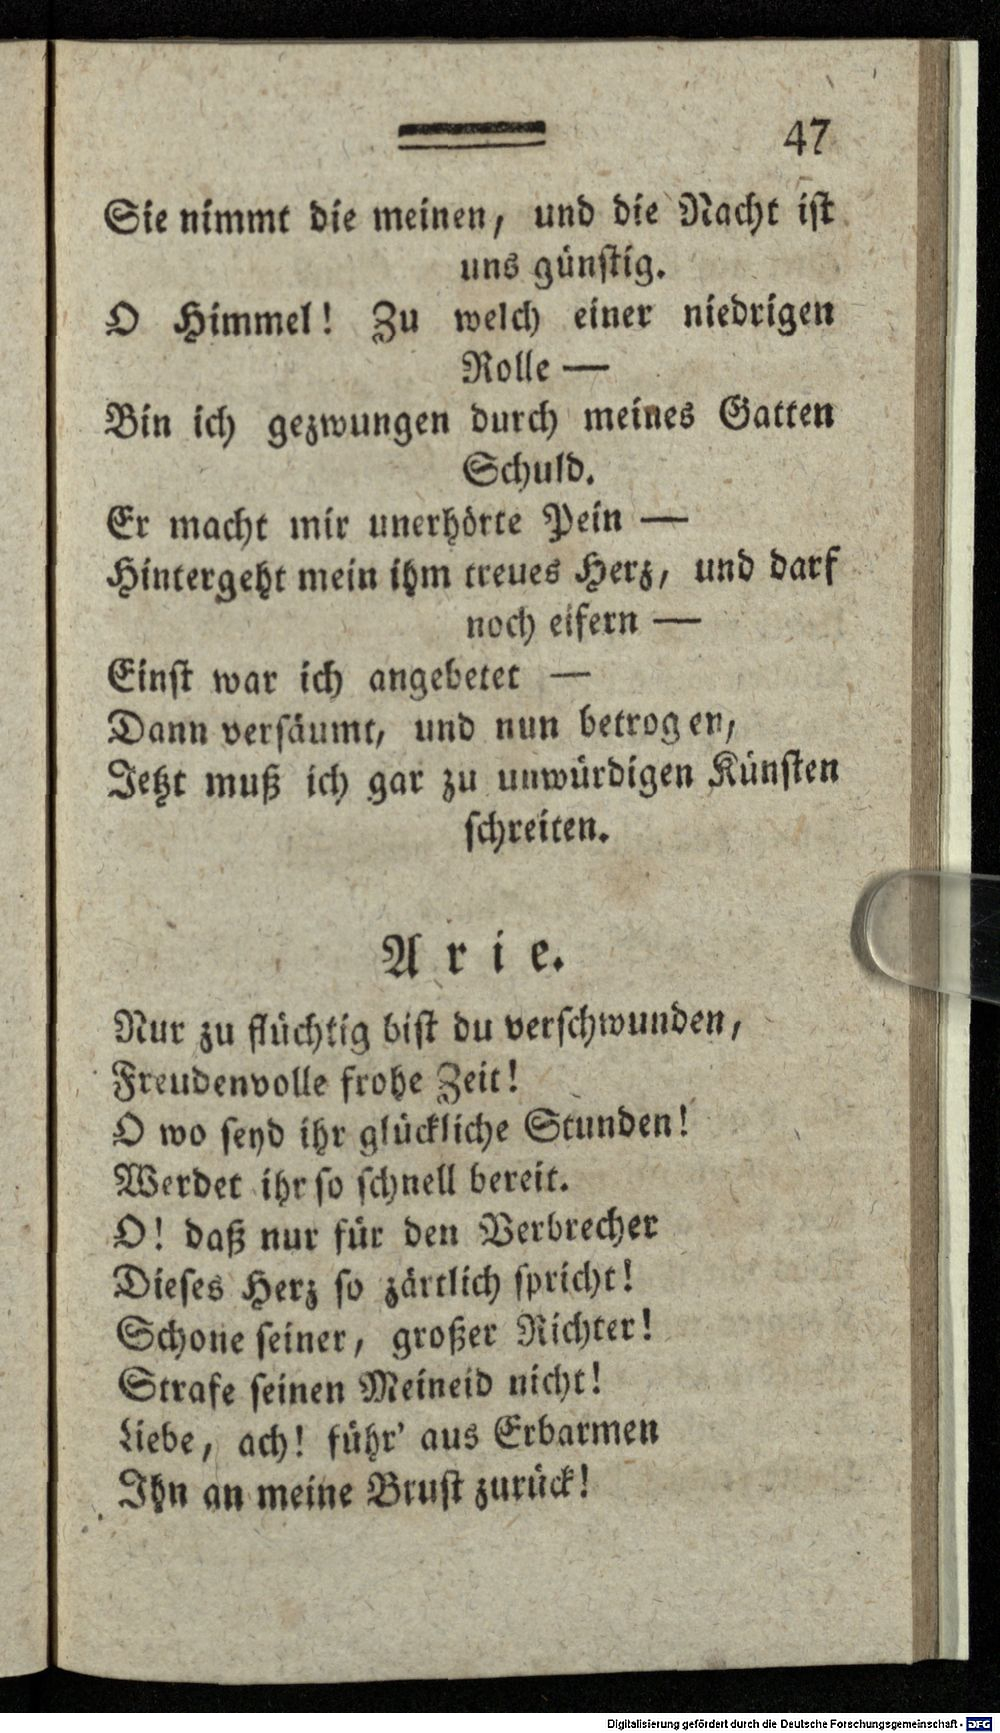 47
Sie nimmt die meinen, und die Nacht ist
uns günstig.
O Himmel! Zu welch einer niedrigen
Rolle —
Bin ich gezwungen durch meines Gatten
Schuld.
Er macht mir unerhörte Pein —
Hintergeht mein ihm treues Herz, und darf
noch eifern —
Einst war ich angebetet —
Dann versäumt, und nun betrogen,
Jetzt muß ich gar zu unwürdigen Künsten
schreiten.
Arie.
Nur zu flüchtig bist du verschwunden,
Freudenvolle frohe Zeit!
O wo seyd ihr glückliche Stunden!
Werdet ihr so schnell bereit.
O! daß nur für den Verbrecher
Dieses Herz so zärtlich spricht!
Schone seiner, großer Richter!
Strafe seinen Meineid nicht!
Liebe, ach! führ' aus Erbarmen
Ihn an meine Brust zurück!
Digitalisierung gefördert durch die Deutsche Forschungsgemeinschaft - DFG